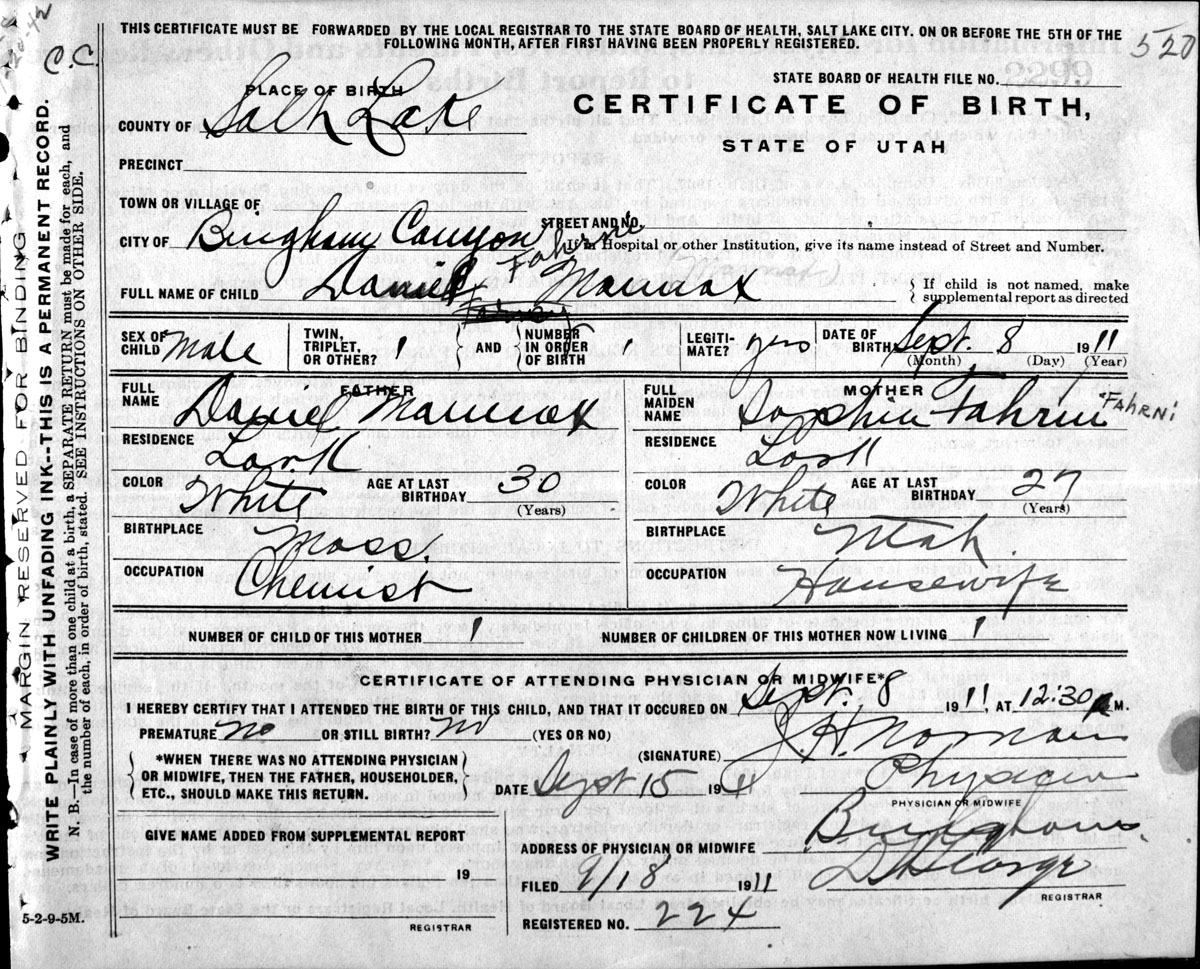 THIS CERTIFICATE MUST BE FORWARDED BY THE LOCAL REGISTRAR TO THE STATE BOARD OF HEALTH, SALT LAKE CITY. ON OR BEFORE THE 5TH OF THE
FOLLOWING MONTH, AFTER FIRST HAVING BEEN PROPERLY REGISTERED.
520
C.C.
STATE BOARD OF HEALTH FILE NO.
PLACE OF BIRTH
CERTIFICATE OF BIRTH,
COUNTY OF Salt Lake
STATE OF UTAH
PRECINCT
TOWN OR VILLAGE OF
STREET AND NO.
CITY OF Bingham Canyon
If in Hospital or other Institution, give its name instead of Street and Number.
Fahrni
FULL NAME OF CHILD Daniel Mancox
If child is not named, make
supplemental report as directed
Farney
SEX OF CHILD Male TWIN, TRIPLET, OR OTHER? 1 AND NUMBER IN ORDER OF BIRTH 1 LEGITI-MATE? yes DATE OF BIRTH Sept. 8 1911
(Month) (Day) (Year)
FATHER MOTHER
FULL NAME Daniel Mancox FULL MAIDEN NAME Sophia Fahrni "FAHRNI
RESIDENCE Lark RESIDENCE Lark
COLOR White AGE AT LAST BIRTHDAY 30 (Years) COLOR White AGE AT LAST BIRTHDAY 27 (Years)
BIRTHPLACE Mass. BIRTHPLACE Utah.
OCCUPATION Chemist OCCUPATION Housewife
NUMBER OF CHILD OF THIS MOTHER 1 NUMBER OF CHILDREN OF THIS MOTHER NOW LIVING 1
CERTIFICATE OF ATTENDING PHYSICIAN OR MIDWIFE*
I HEREBY CERTIFY THAT I ATTENDED THE BIRTH OF THIS CHILD, AND THAT IT OCCURED ON Sept. 8 1911, AT 12:30 P M.
PREMATURE no OR STILL BIRTH? no (YES OR NO)
(SIGNATURE)
*WHEN THERE WAS NO ATTENDING PHYSICIAN
OR MIDWIFE, THEN THE FATHER, HOUSEHOLDER,
ETC., SHOULD MAKE THIS RETURN.
DATE Sept 15 1911 Physician
PHYSICIAN OR MIDWIFE
GIVE NAME ADDED FROM SUPPLEMENTAL REPORT
ADDRESS OF PHYSICIAN OR MIDWIFE Bingham.
19
FILED 9/18 1911
REGISTRAR
REGISTERED NO. 224
5-2-9-5M.
REGISTRAR
MARGIN RESERVED FOR BINDING
WRITE PLAINLY WITH UNFADING INK--THIS IS A PERMANENT RECORD.
N. B.—In case of more than one child at a birth, a SEPARATE RETURN must be made for each, and
the number of each, in order of birth, stated. SEE INSTRUCTIONS ON OTHER SIDE.